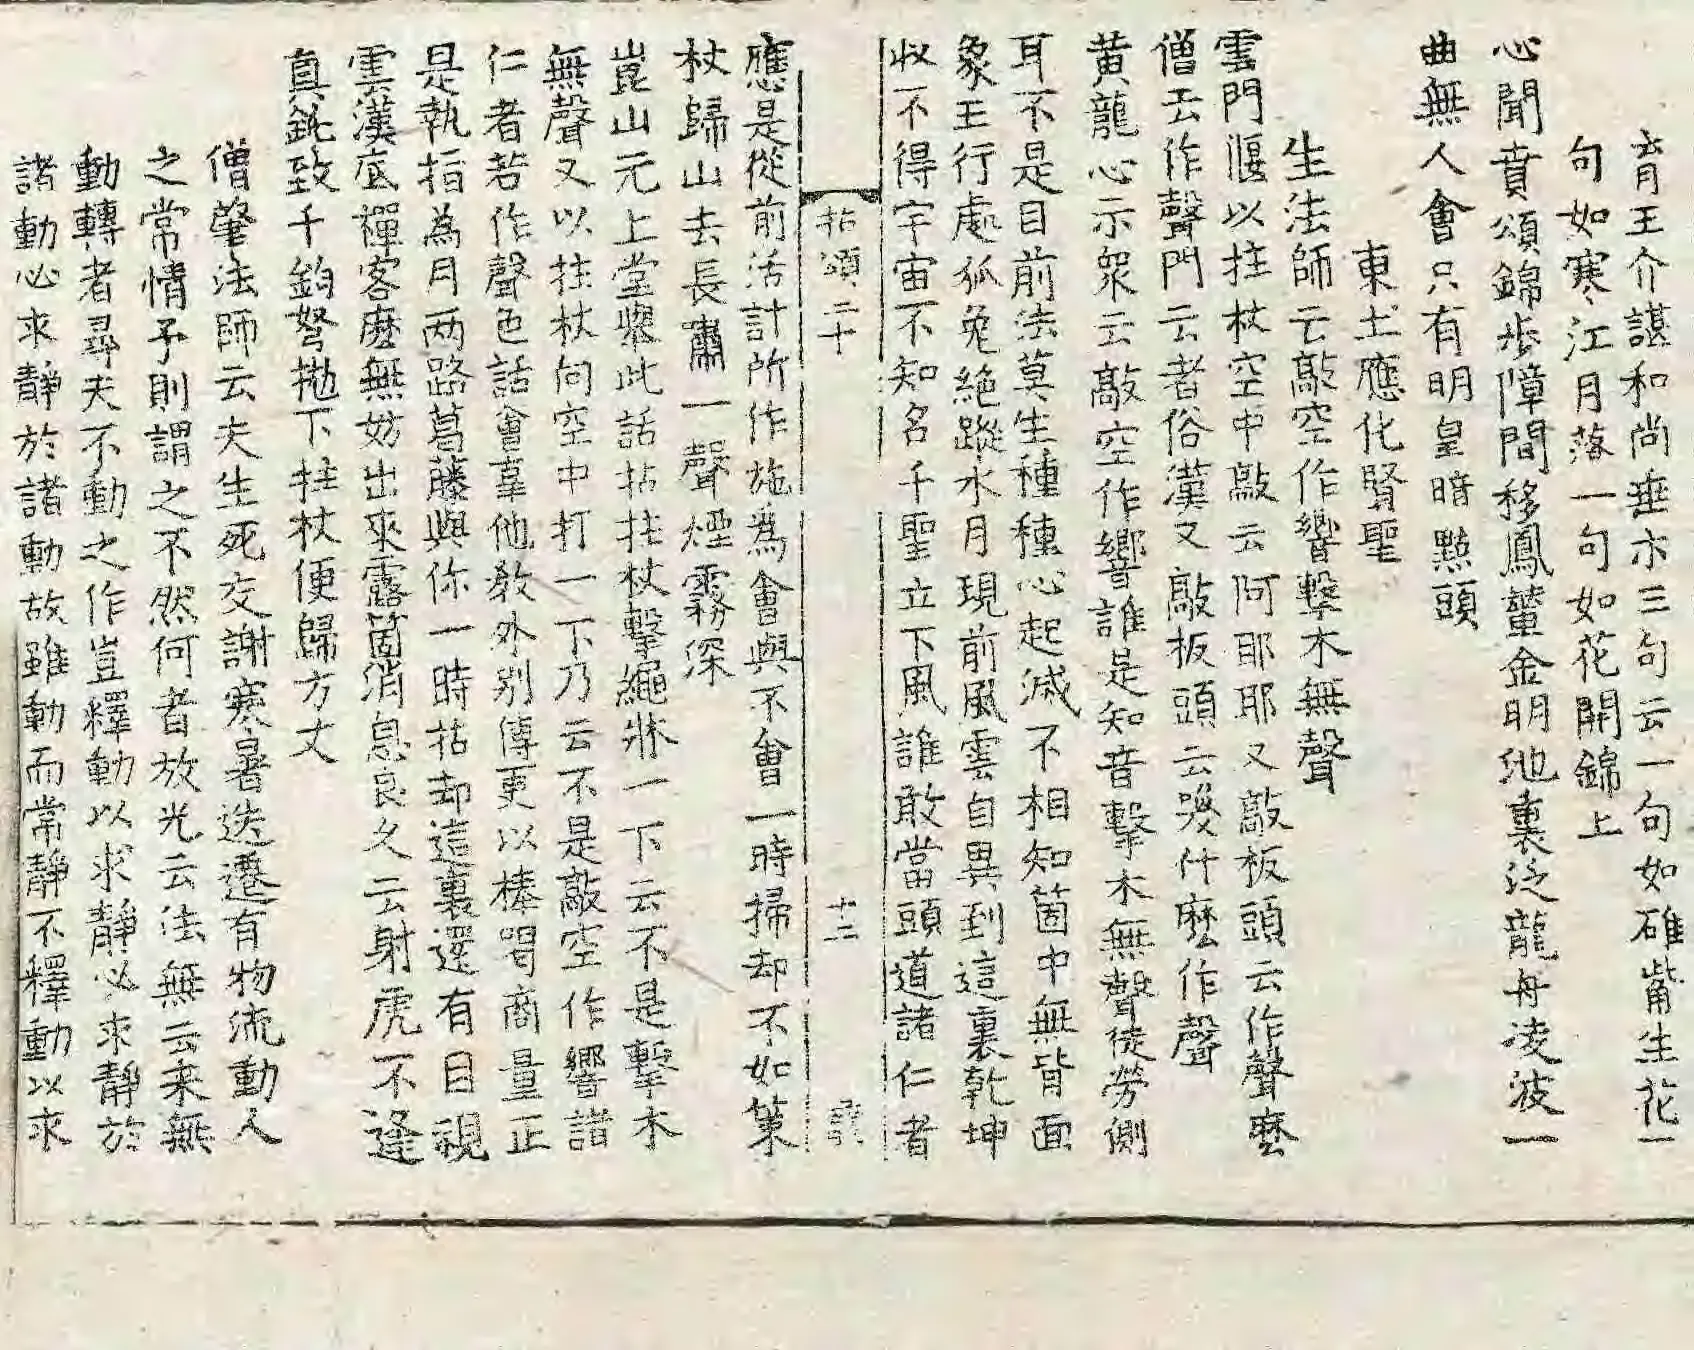 育王介諶和尚垂示三句云一句如碓觜生花一
句如寒江月落一句如花開錦上
心聞賁頌錦步障間移鳳輦金明池裏泛龍舟凌波一
曲無人會只有明皇暗點頭
東土應化賢聖
生法師云敲空作響擊木無聲
雲門偃以拄杖空中敲云阿耶耶又敲板頭云作聲麼
僧云作聲門云者俗漢又敲板頭云喚什麼作聲
黄龍心示衆云敲空作響誰是知音擊木無聲徒勞側
耳不是目前法莫生種種心起滅不相知箇中無背面
象王行處狐兔絶蹤水月現前風雲自異到這裏乾坤
収不得宇宙不知名千聖立下風誰敢當頭道諸仁者
拈頌二十
十二
應是從前活計所作施為會與不會一時掃却不如策
杖歸山去長嘯一聲煙霧深
崑山元上堂舉此話拈拄杖擊繩牀一下云不是擊木
無聲又以拄杖向空中打一下乃云不是敲空作響諸
仁者若作聲色話會辜他教外别傳更以棒喝商量正
是執指為月两路葛藤與你一時拈却這裏還有目視
雲漢底禪客麽無妨出來露箇消息良久云射虎不逢
真鈍致千鈞弩抛下拄杖便歸方丈
僧肇法師云夫生死交謝寒暑迭遷有物流動人
之常情予則謂之不然何者放光云法無云来無
動轉者尋夫不動之作豈釋動以求靜必求靜於
諸動必求靜於諸動故雖動而常靜不釋動以求